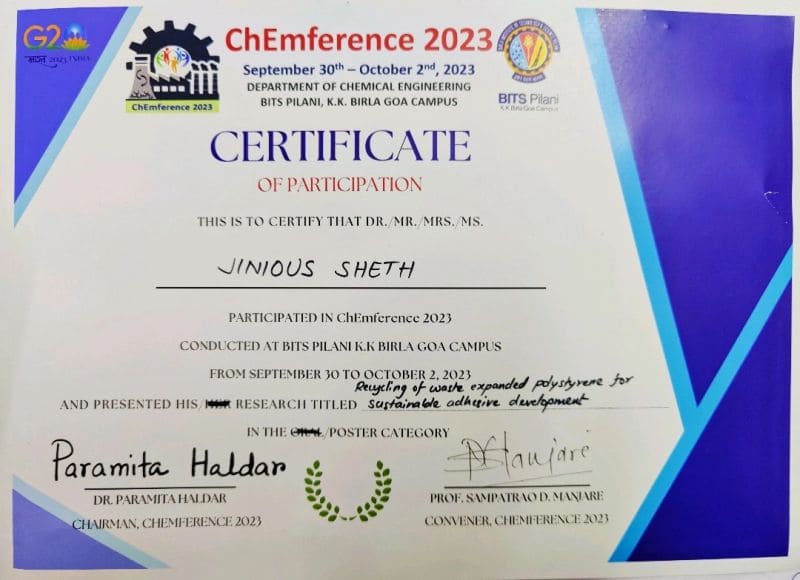 G20
भारत 2023 INDIA
ChEmference 2023
ChEmference 2023
September 30th – October 2nd, 2023
DEPARTMENT OF CHEMICAL ENGINEERING
BITS PILANI, K.K. BIRLA GOA CAMPUS
BITS Pilani
K K Birla Goa Campus
CERTIFICATE
OF PARTICIPATION
THIS IS TO CERTIFY THAT DR./MR./MRS./MS.
JINIOUS SHETH
PARTICIPATED IN ChEmference 2023
CONDUCTED AT BITS PILANI K.K BIRLA GOA CAMPUS
FROM SEPTEMBER 30 TO OCTOBER 2, 2023
Recycling of waste expanded polystyrene for
AND PRESENTED HIS/HER RESEARCH TITLED sustainable adhesive development
IN THE ORAL/POSTER CATEGORY
Paramita Haldar
DR. PARAMITA HALDAR
CHAIRMAN, CHEMFERENCE 2023
PROF. SAMPATRAO D. MANJARE
CONVENER, CHEMFERENCE 2023